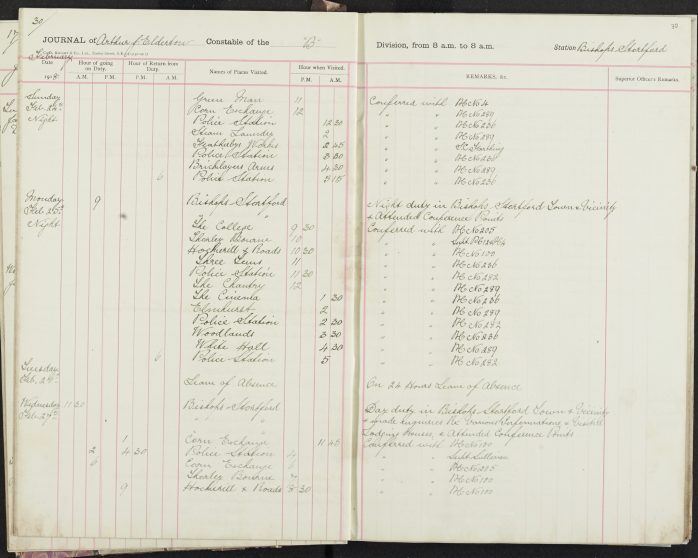 30
JOURNAL of Arthur J. Elderton Constable of the "B"
February
1918.
Hour of going on Duty.
A.M. P.M.
Hour of Return from Duty.
A.M. P.M.
Names of Places Visited.
Hour when Visited.
P.M. A.M.
Sunday
Feb. 24th
Night
Green Man 11
Corn Exchange 12
Police Station 12 30
Steam Laundry 2
Works 2 45
Police Station 3 30
Bricklayers Arms 4 30
6 Police Station 5 15
Monday 9 Bishops Stortford
Feb. 25th
Night
The College 9 30
Thorley Bourne 10
Hockerill X Roads 10 30
Three Tuns 11
Police Station 11 30
The Chantry 12
The Cinema 1 30
Elmhurst 2
Police Station 2 30
Woodlands 3 30
White Hall 4 30
6 Police Station 5
Tuesday
Feb. 26th
Leave of Absence
Wednesday 11 30 Bishops Stortford
Feb. 27th
1 Corn Exchange 11 45
2 4 30 Police Station 4
6 Corn Exchange 6
Thorley Bourne 7
9 Hockerill X Roads 8 30
30
Division, from 8 a.m. to 8 a.m. Station Bishops Stortford
REMARKS, &c.
Superior Officer's Remarks.
Conferred with PC No 4
" " PC No 289
" " PC No 236
" "
" "
" "
" " PC No 289
" " PC No 236
Night duty in Bishops Stortford Town & Vicinity
& Attended Conference Points
Conferred with PC No 205
" "
" " PC No 100
" " PC No 236
" " PC No 282
" " PC No 289
" " PC No 236
" " PC No 289
" " PC No 282
" " PC No 236
" " PC No 289
" " PC No 282
On 24 Hours Leave of Absence
Day duty in Bishops Stortford Town & Vicinity
& made Enquiries Re Various &
Lodging Houses, & Attended Conference Points
Conferred with PC No 100
" " Supt Sullivan
" " PC No 205
" " PC No 100
" " PC No 100